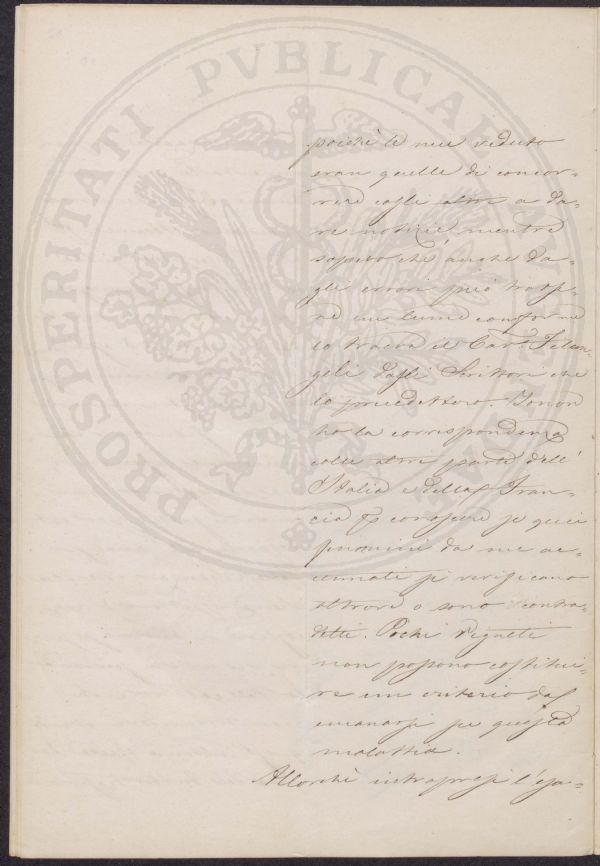 PROSPERITATI PVBLICAE
poichè le mie vedute
eran quelle di concor-
rere cogli altri a da-
re notizie mentre
sapevo che anche da-
gli errori può trar-
re un lume conforme
lo traeva il Cav.
dagli Scrittori che
lo precedettero. Io non
ho la corrispondenza
colle altre parti dell'
Italia e della Fran-
cia p conoscere se quei
da me ac-
cennati si verificano
altrove o sono contra-
detti. Pochi vigneti
non possono costitui-
re un criterio da
emanarsi per questa
malattia.
Allorchè intrapresi l'esa-